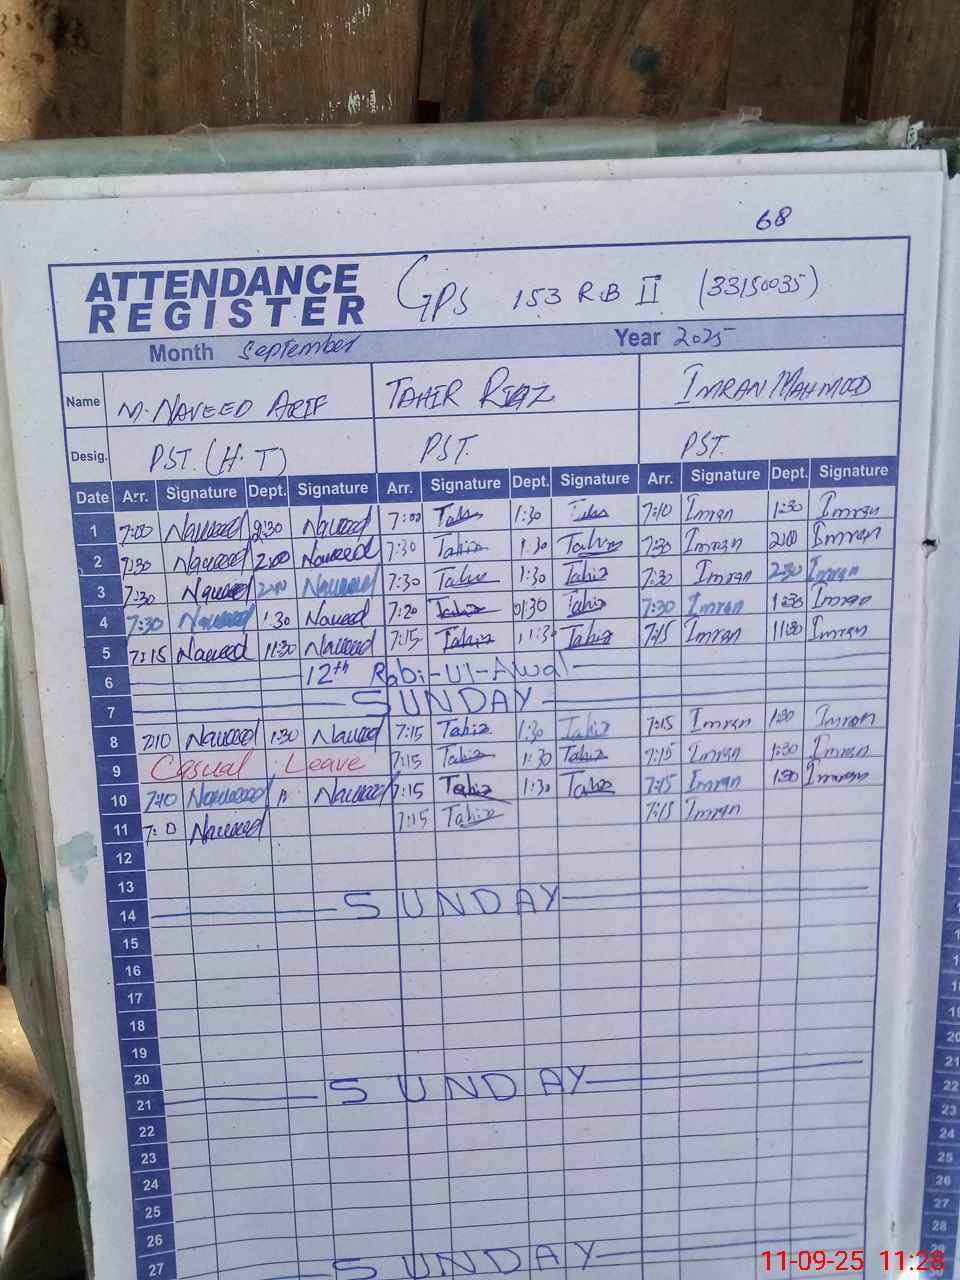 68
ATTENDANCE REGISTER GPS 153 RB II (33150035)
Month September Year 2025
Name M. NAVEED ARIF TAHIR RIAZ IMRAN MAHMOOD
Desig. PST. (H.T) PST. PST.
Date Arr. Signature Dept. Signature Arr. Signature Dept. Signature Arr. Signature Dept. Signature
1 7:00 Naveed 2:30 Naveed 7:00 Tahir 1:30 Tahir 7:10 Imran 1:30 Imran
2 7:30 Naveed 2:00 Naveed 7:30 Tahir 1:30 Tahir 7:30 Imran 2:00 Imran
3 7:30 Naveed 2:00 Naveed 7:30 Tahir 1:30 Tahir 7:30 Imran 2:30 Imran
4 7:30 Naveed 1:30 Naveed 7:20 Tahir 01:30 Tahir 7:30 Imran 1:30 Imran
5 7:15 Naveed 11:30 Naveed 7:15 Tahir 11:30 Tahir 7:15 Imran 11:30 Imran
6 12th Rabi-Ul-Awal
7 SUNDAY
8 7:10 Naveed 1:30 Naveed 7:15 Tahir 1:30 Tahir 7:15 Imran 1:30 Imran
9 Casual Leave 7:15 Tahir 1:30 Tahir 7:15 Imran 1:30 Imran
10 7:10 Naveed Naveed 7:15 Tahir 1:30 Tahir 7:15 Imran 1:30 Imran
11 Naveed 7:15 Tahir 7:15 Imran
12
13
14 SUNDAY
15
16
17
18
19
20
21 SUNDAY
22
23
24
25
26
27 SUNDAY
19
20
21
22
23
24
25
26
27
28
11-09-25 11:28